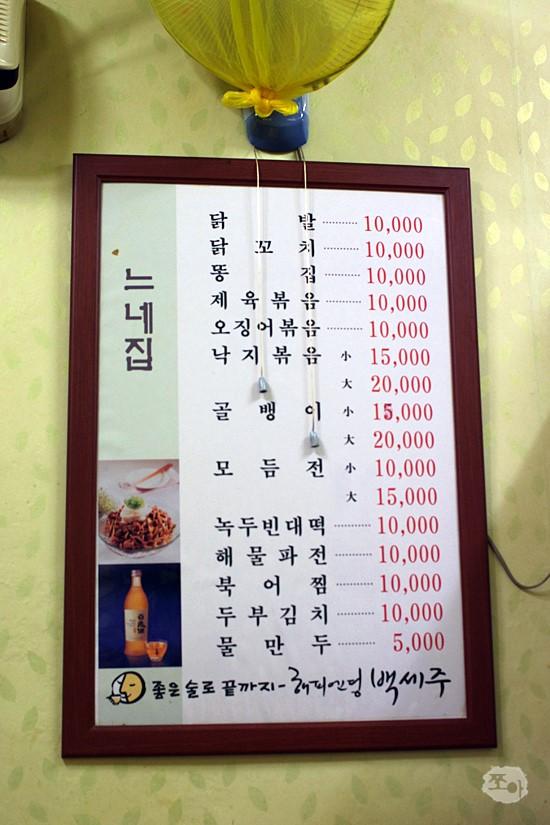 느네집
닭 발 ---------- 10,000
닭 꼬 치 ---------- 10,000
똥 집 ---------- 10,000
제 육 볶 음 ---------- 10,000
오징어볶음 ---------- 10,000
낙 지 볶 음 小 15,000
大 20,000
골 뱅 이 小 15,000
大 20,000
모 듬 전 小 10,000
大 15,000
녹두빈대떡 ---------- 10,000
해 물 파 전 ---------- 10,000
북 어 찜 ---------- 10,000
두 부 김 치 ---------- 10,000
물 만 두 ---------- 5,000
좋은 술로 끝까지- 해피엔딩 백세주
쪼아